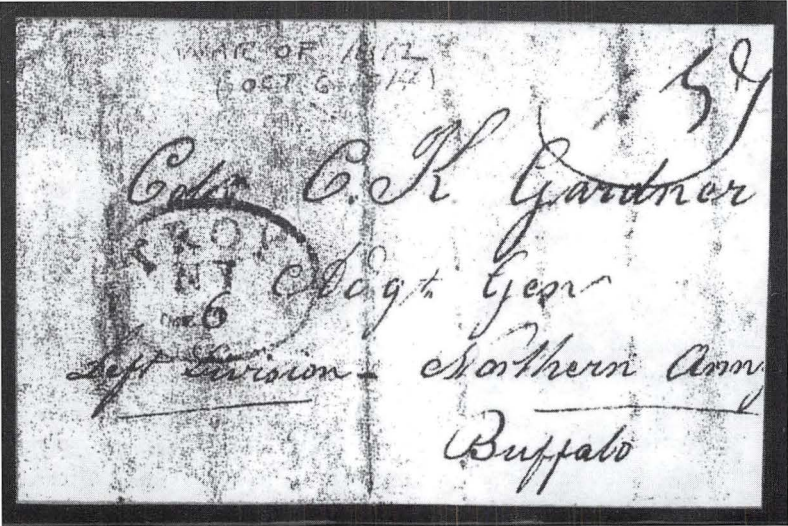 WAR OF 1812
(OCT. 6
Colo. C. K Gardner
TROY
NY
6
Adgt. Gen
Left Division - Northern Army
Buffalo